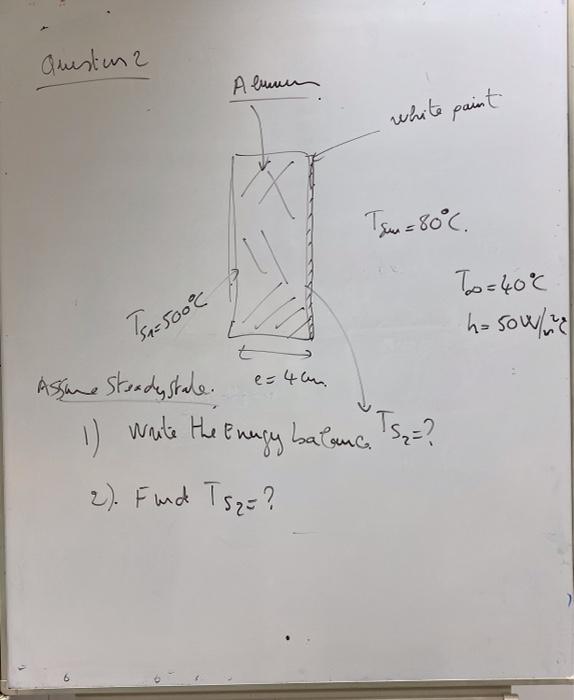 Question 2
white paint
Tsur = 80°C.
T∞ = 40°C
h = 50 W/m²°C
Ts1 = 500°C
e = 4 cm.
Assume Steady state.
1) Write the Energy balance. Ts2 = ?
2). Find Ts2 = ?